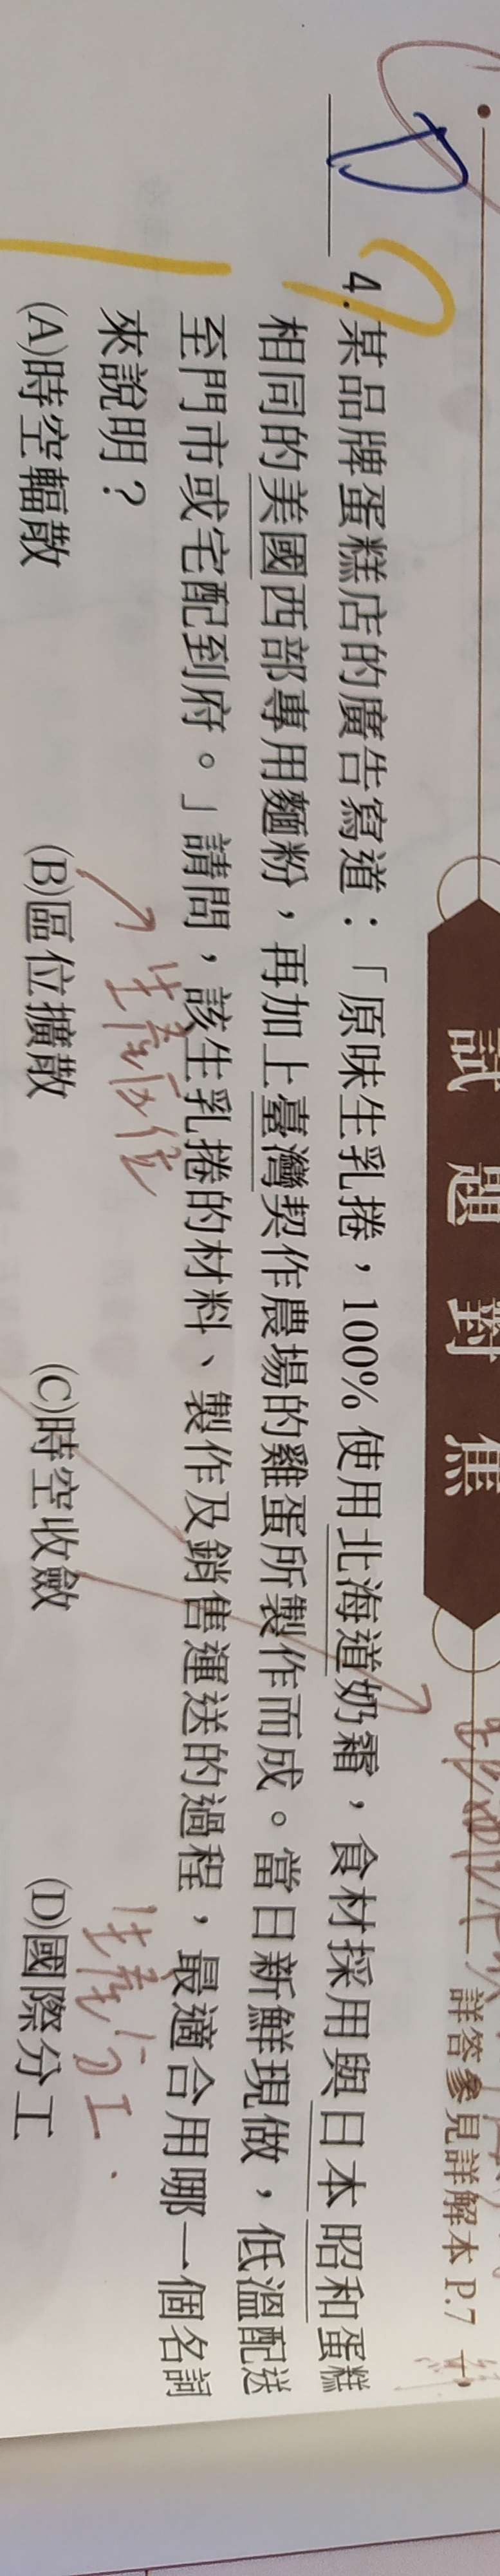 試題對焦
詳答參見詳解本 P.7
D
4.某品牌蛋糕店的廣告寫道：「原味生乳捲，100% 使用北海道奶霜，食材採用與日本昭和蛋糕
相同的美國西部專用麵粉，再加上臺灣契作農場的雞蛋所製作而成。當日新鮮現做，低溫配送
至門市或宅配到府。」請問，該生乳捲的材料、製作及銷售運送的過程，最適合用哪一個名詞
來說明？
生產區位
生產分工.
(A)時空輻散 (B)區位擴散 (C)時空收斂 (D)國際分工